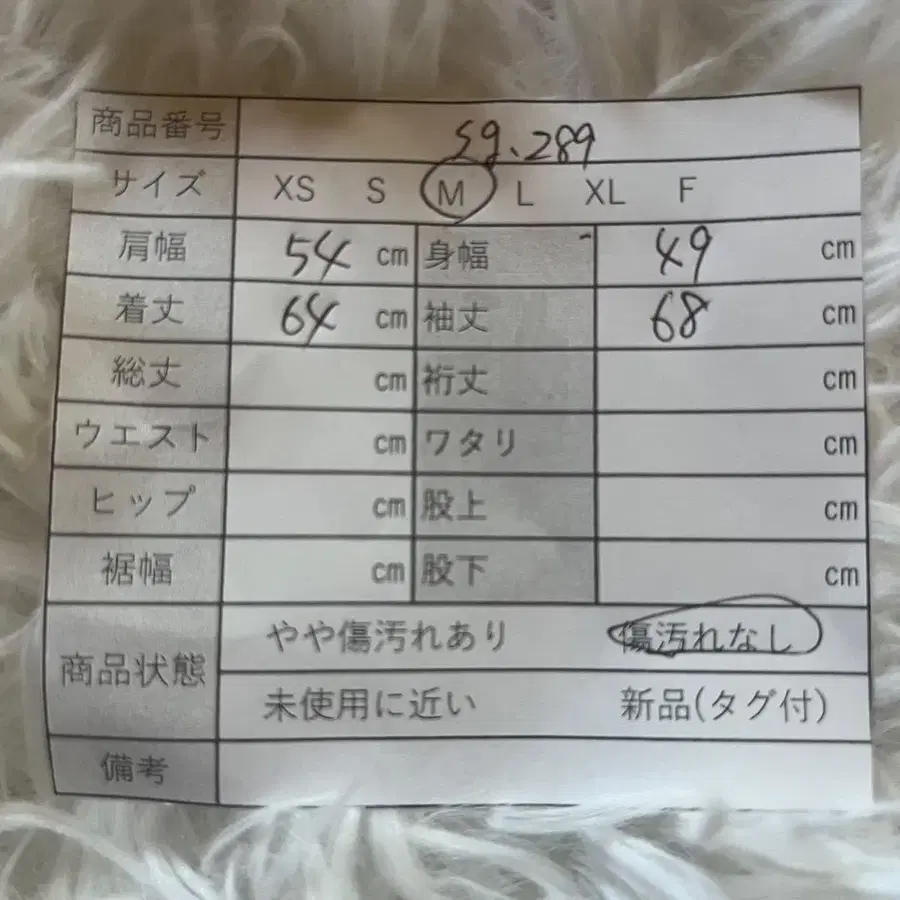 商品番号 sg.289
サイズ XS S M L XL F
肩幅 54 cm 身幅 49 cm
着丈 64 cm 袖丈 68 cm
総丈 cm 裄丈 cm
ウエスト cm ワタリ cm
ヒップ cm 股上 cm
裾幅 cm 股下 cm
商品状態 やや傷汚れあり 傷汚れなし
未使用に近い 新品(タグ付)
備考